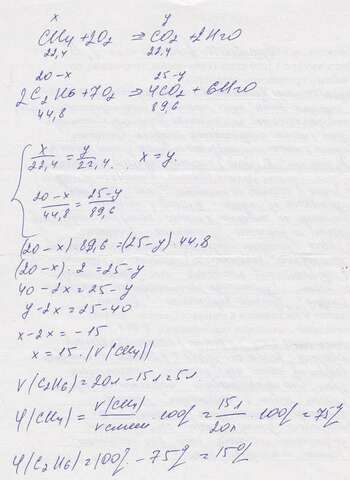 x y
CH4 + 2O2 ⇒ CO2 + 2H2O
22,4 22,4
20-x 25-y
2C2H6 + 7O2 ⇒ 4CO2 + 6H2O
44,8 89,6
x/22,4 = y/22,4 . x = y.
20-x/44,8 = 25-y/89,6
(20-x) · 89,6 = (25-y) · 44,8
(20-x) · 2 = 25-y
40-2x = 25-y
y-2x = 25-40
x-2x = -15
x = 15. (V(CH4))
V(C2H6) = 20л - 15л = 5л.
φ(CH4) = V(CH4)/V смеси · 100% = 15л/20л · 100% = 75%
φ(C2H6) = 100% - 75% = 15%